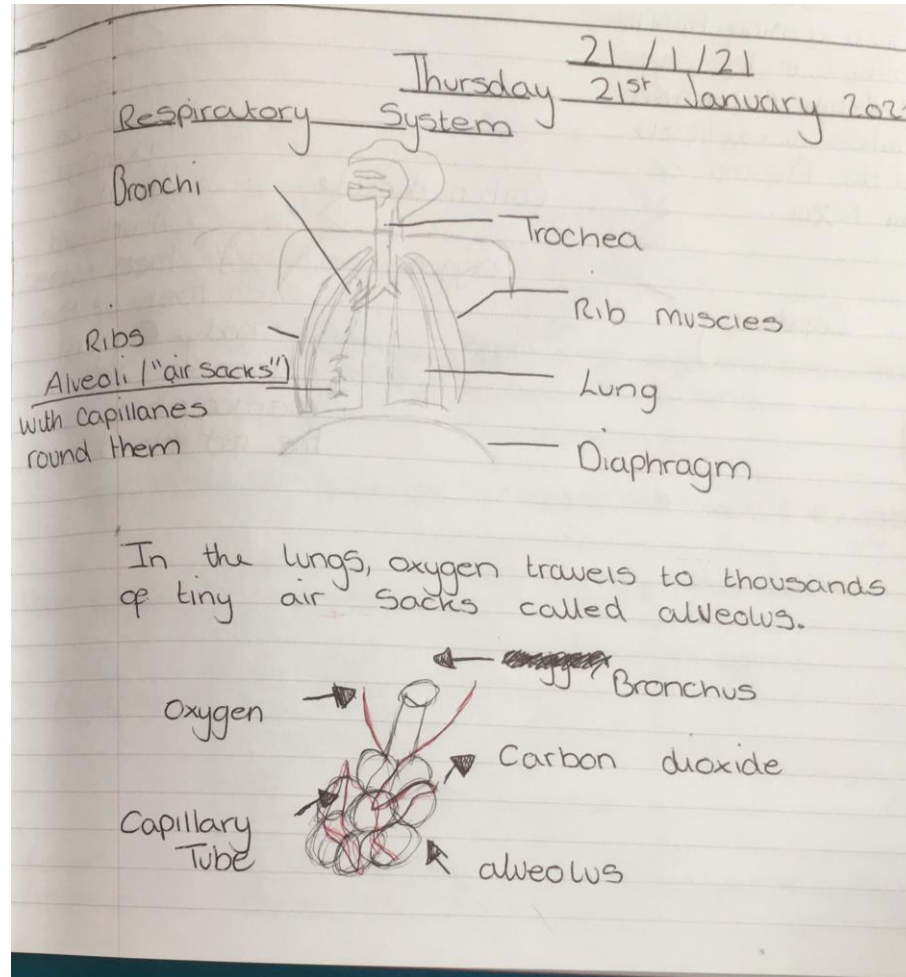 21/1/21
Thursday 21st January 202
Respiratory System
Bronchi
Trochea
Rib muscles
Ribs
Alveoli ("air sacks")
with capillaries
round them
Lung
Diaphragm
In the lungs, oxygen travels to thousands
of tiny air sacks called alveolus.
Bronchus
Oxygen
Carbon dioxide
Capillary
Tube
alveolus